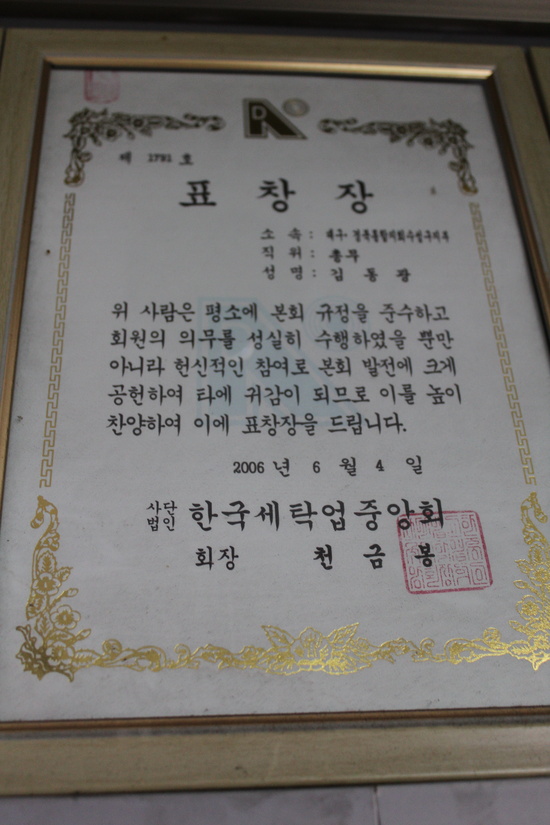 제 1791 호
표 창 장
소 속 : 대구·경북통합지회수성구지부
직 위 : 총무
성 명 : 김 동 광
위 사람은 평소에 본회 규정을 준수하고
회원의 의무를 성실히 수행하였을 뿐만
아니라 헌신적인 참여로 본회 발전에 크게
공헌하여 타에 귀감이 되므로 이를 높이
찬양하여 이에 표창장을 드립니다.
2006 년 6 월 4 일
사단법인 한국세탁업중앙회
회장 천 금 봉